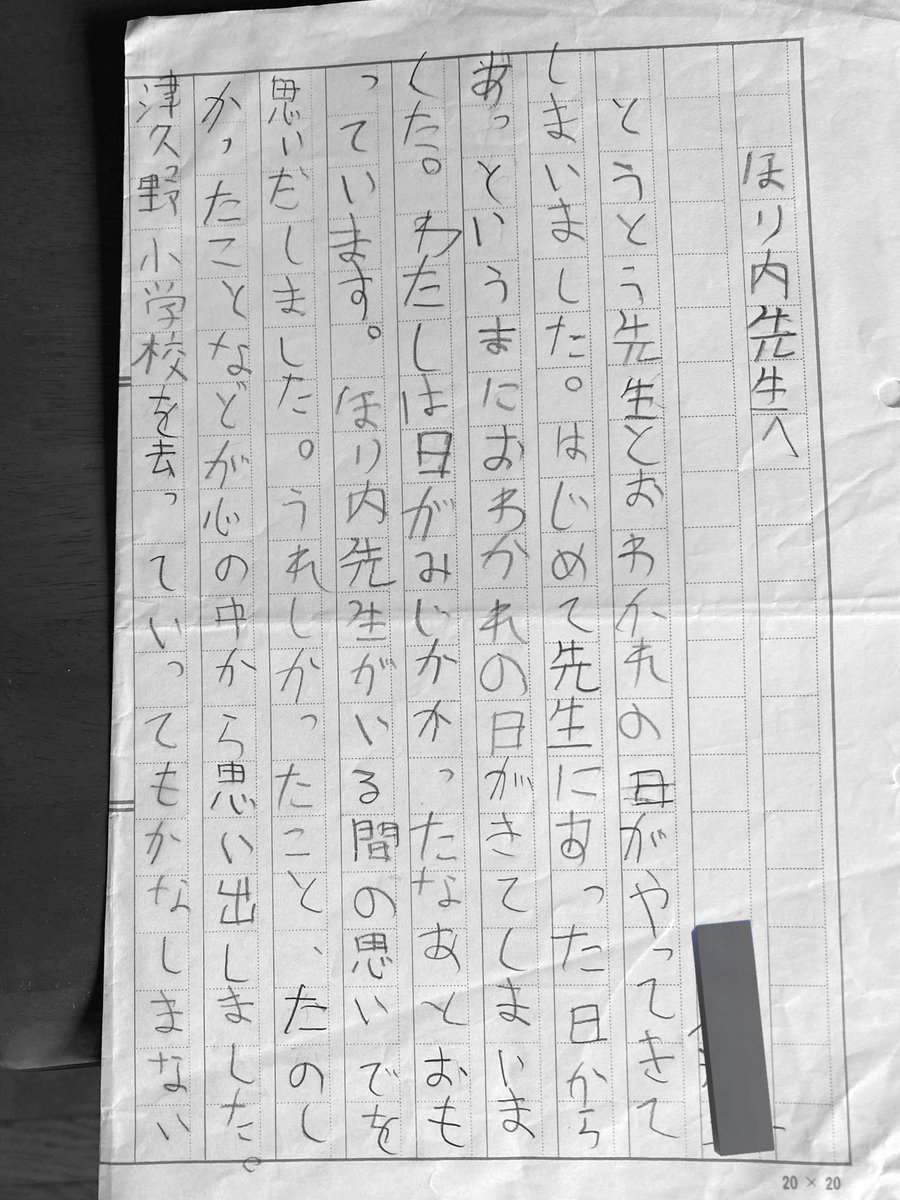 ほり内先生へ
とうとう先生とおわかれの日がやってきて
しまいました。はじめて先生にあった日から
あっというまにおわかれの日がきてしまいま
した。わたしは日がみじかかったなあとおも
っています。ほり内先生がいる間の思いでを
思いだしました。うれしかったこと、たのし
かったことなどが心の中から思い出しました。
津久野小学校を去っていってもかなしまない
20×20